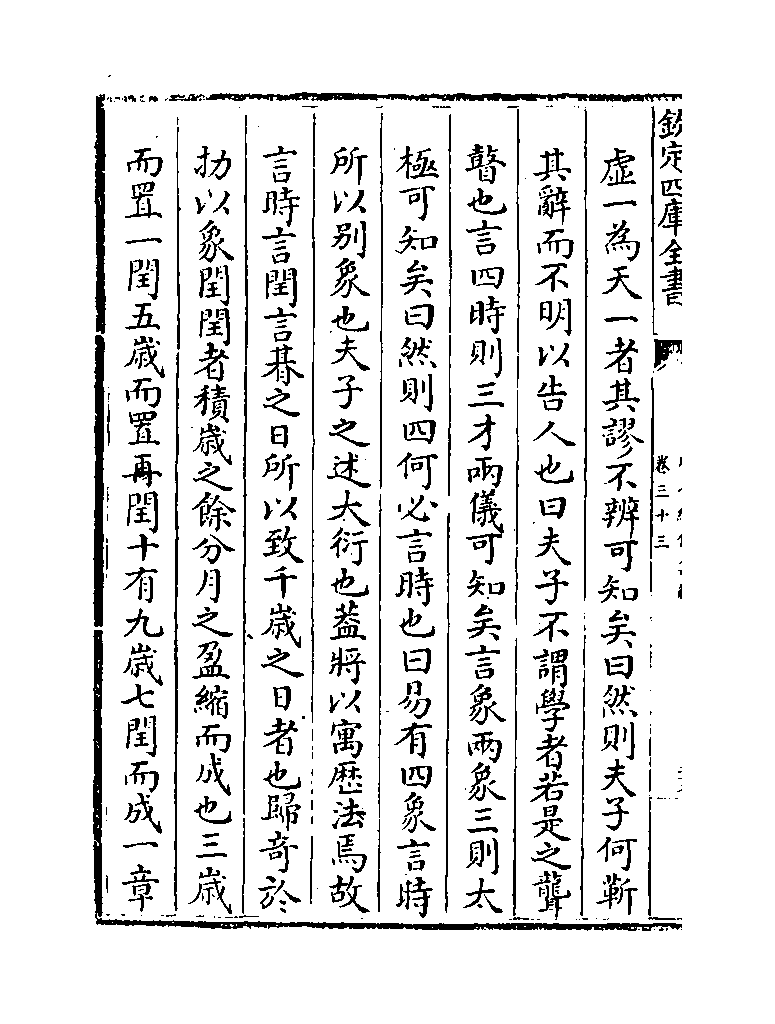 欽定四庫全書
卷三十三
虛一為天一者其謬不辨可知矣曰然則夫子何靳
其辭而不明以告人也曰夫子不謂學者若是之聾
瞽也言四時則三才兩儀可知矣言象兩象三則太
極可知矣曰然則四何必言時也曰易有四象言時
所以别象也夫子之述大衍也葢將以寓厯法焉故
言時言閏言朞之日所以致千歳之日者也歸奇於
扐以象閏閏者積歳之餘分月之盈縮而成也三歳
而置一閏五歳而置再閏十有九歳七閏而成一章